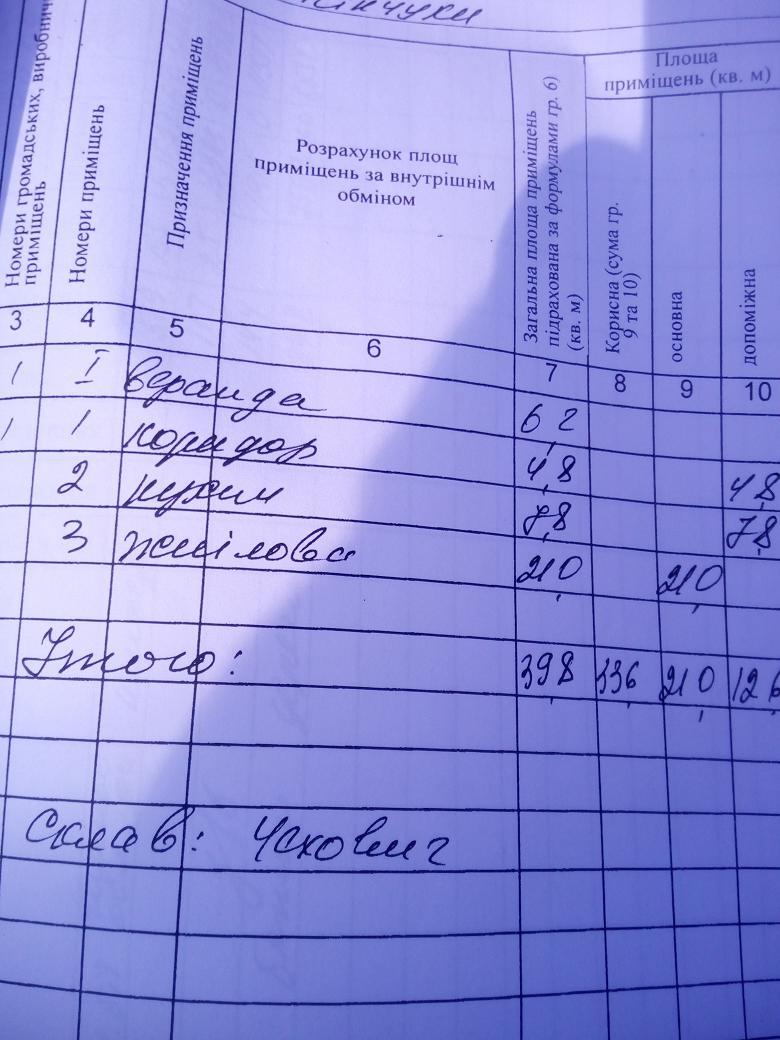 Номери громадських, виробнич
приміщень
Номери приміщень
Призначення приміщень
Розрахунок площ
приміщень за внутрішнім
обміном
Загальна площа приміщень
підрахована за формулами гр. 6)
(кв. м)
Площа
приміщень (кв. м)
Корисна (сума гр.
9 та 10)
основна
допоміжна
3 4 5 6 7 8 9 10
1 I веранда 6,2
1 1 коридор 4,8 4,8
2 кухня 7,8 7,8
3 житлова 21,0 21,0
Утого: 39,8 33,6 21,0 12,6
Склав: